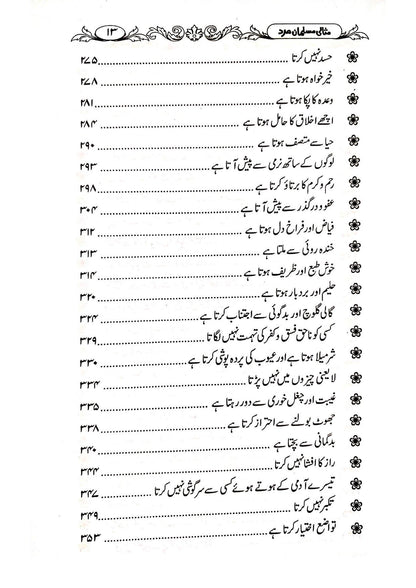 مثالی مسلمان مرد ۱۳
حسد نہیں کرتا ۲۷۵
خیر خواہ ہوتا ہے ۲۷۸
وعدہ کا پکا ہوتا ہے ۲۸۱
اچھے اخلاق کا حامل ہوتا ہے ۲۸۴
حیا سے متصف ہوتا ہے ۲۹۰
لوگوں کے ساتھ نرمی سے پیش آتا ہے ۲۹۳
رحم و کرم کا برتاؤ کرتا ہے ۲۹۸
عفو و درگذر سے پیش آتا ہے ۳۰۴
فیاض اور فراخ دل ہوتا ہے ۳۱۲
خندہ روئی سے ملتا ہے ۳۱۳
خوش طبع اور ظریف ہوتا ہے ۳۱۴
حلیم اور بردبار ہوتا ہے ۳۲۰
گالی گلوچ اور بدگوئی سے اجتناب کرتا ہے ۳۲۴
کسی کو ناحق فسق و کفر کی تہمت نہیں لگاتا ۳۲۹
شرمیلا ہوتا ہے اور عیوب کی پردہ پوشی کرتا ہے ۳۳۰
لایعنی چیزوں میں نہیں پڑتا ۳۳۴
غیبت اور چغل خوری سے دور رہتا ہے ۳۳۵
جھوٹ بولنے سے احتراز کرتا ہے ۳۳۸
بدگمانی سے بچتا ہے ۳۴۰
راز کا افشا نہیں کرتا ۳۴۴
تیسرے آدمی کے ہوتے ہوئے کسی سے سرگوشی نہیں کرتا ۳۴۷
تکبر نہیں کرتا ۳۴۹
تواضع اختیار کرتا ہے ۳۵۳